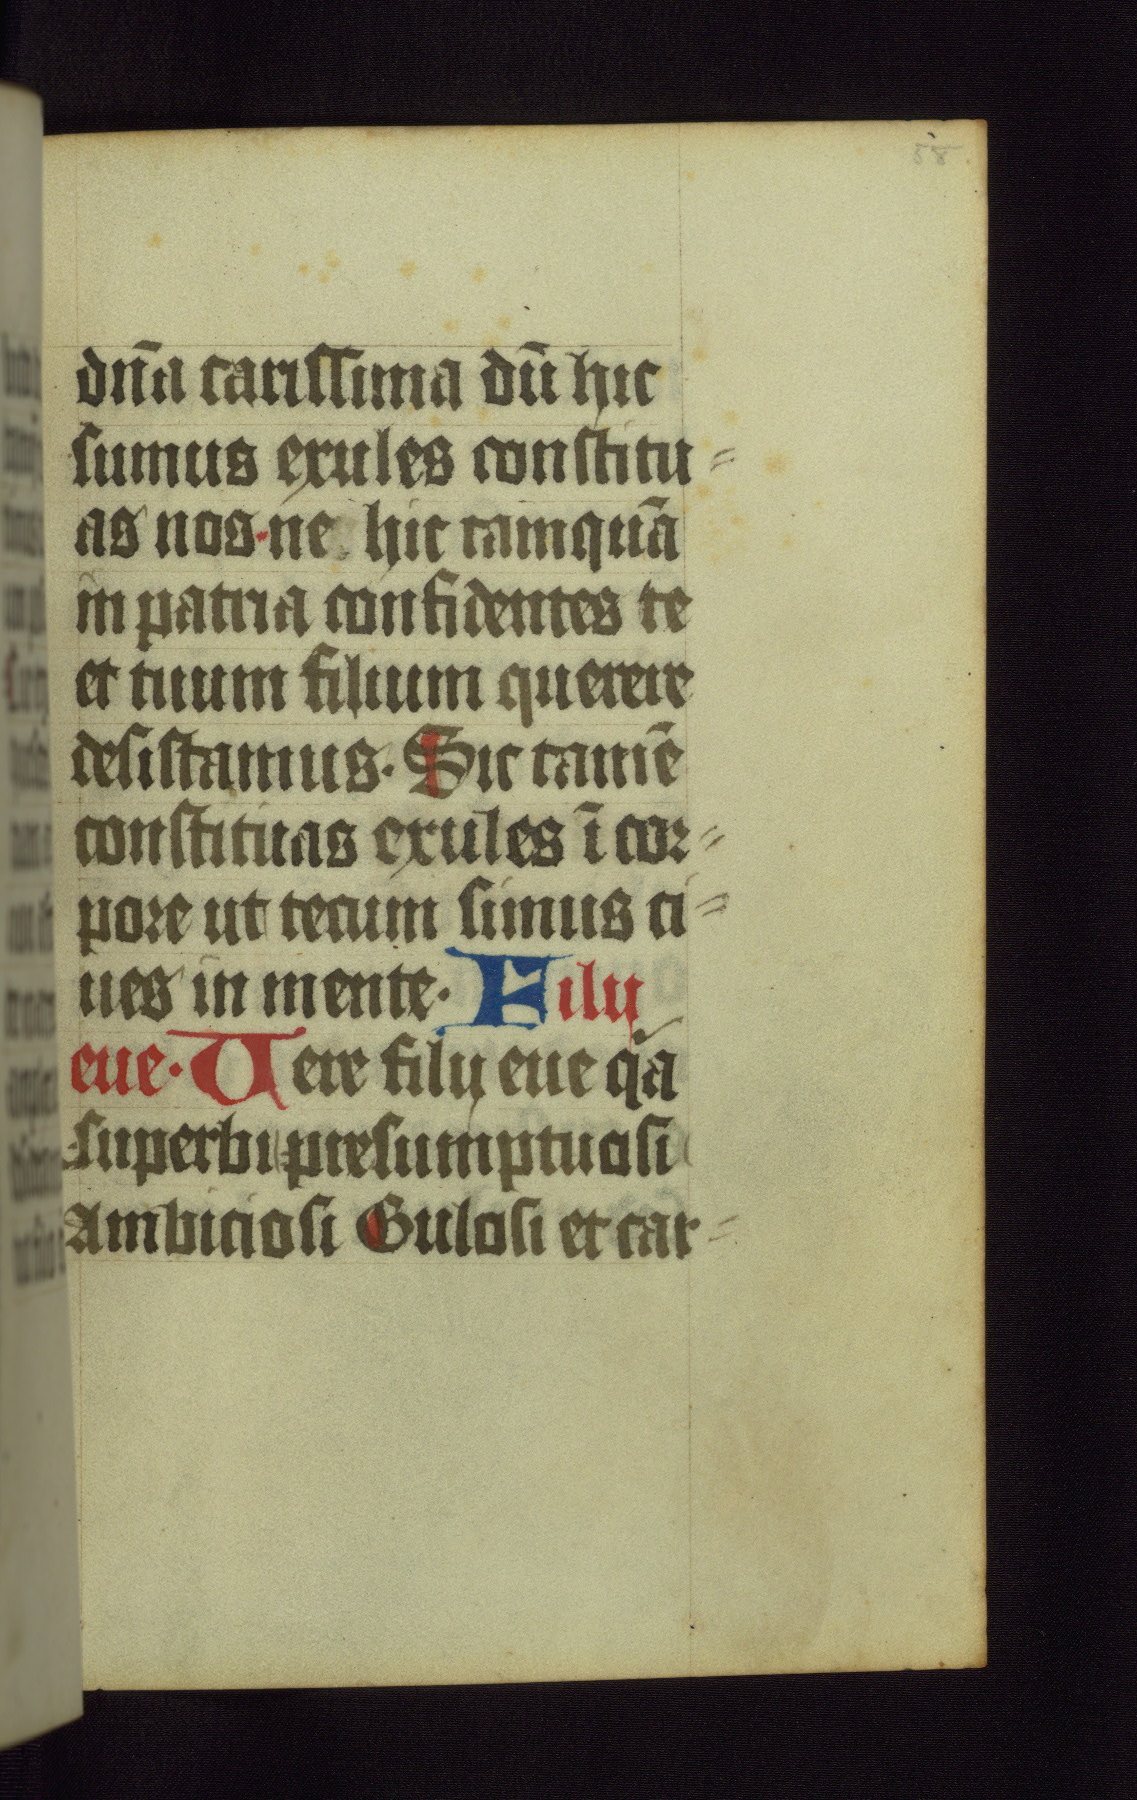 58
dn̄a carissima dū hic
sumus exules constitu=
as nos·ne hic tamquā
in patria confidentes te
et tuum filium querere
desistamus. Sic tamē
constituas exules ī cor=
pore ut tecum simus ci=
ues in mente· Filij
eue· Uere filij eue q̓a
superbi presumptuosi
Ambiciosi Gulosi et car=